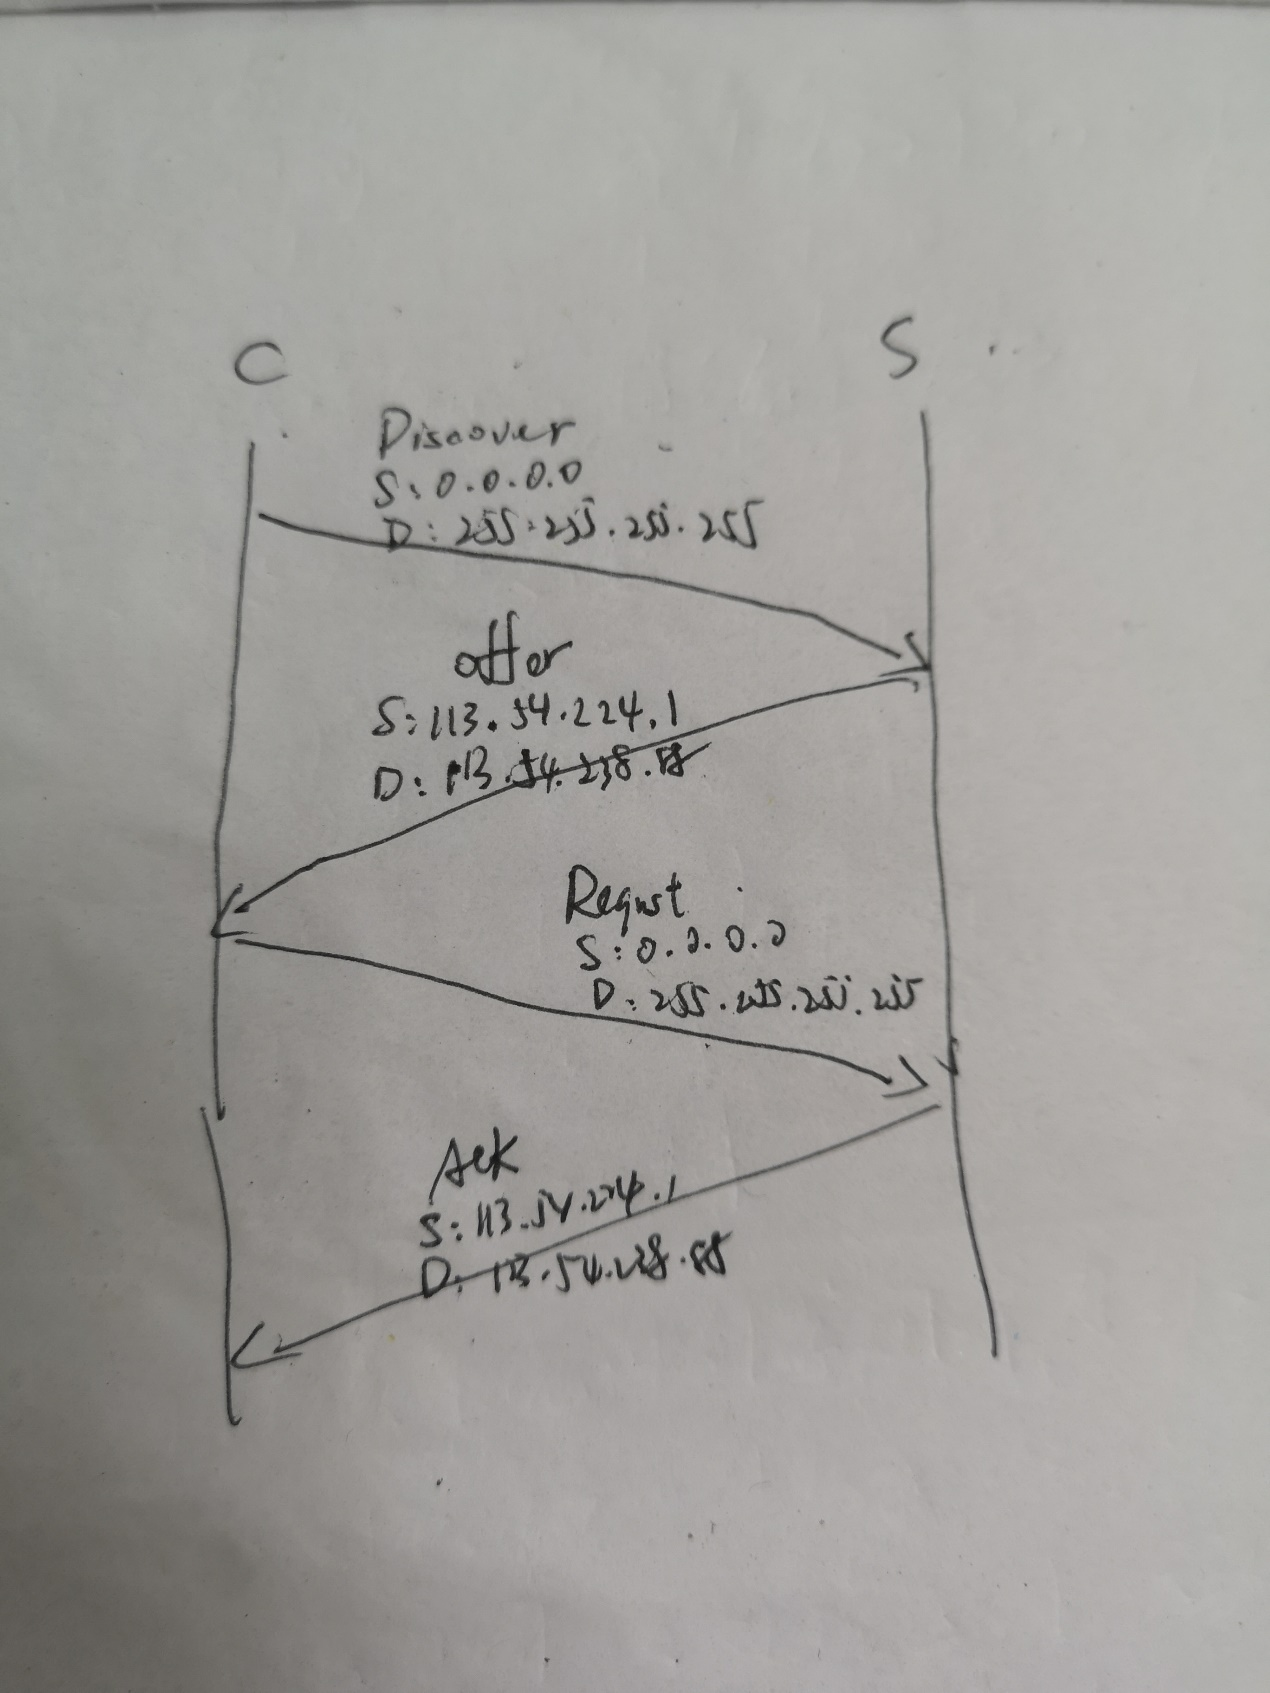 C
S
Discover
S: 0.0.0.0
D: 255.255.255.255
offer
S: 113.54.224.1
D: 113.54.238.88
Requst
S: 0.0.0.0
D: 255.255.255.255
Ack
S: 113.54.224.1
D: 113.54.238.88